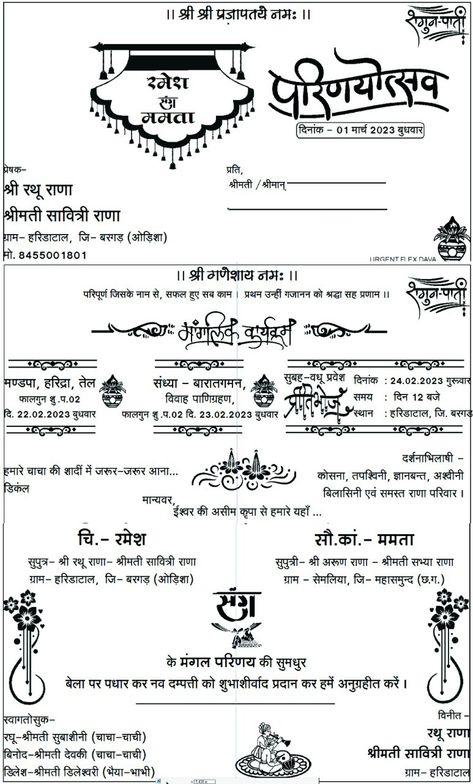 ।। श्री श्री प्रजापतये नमः ।।
शगुन-पाती
रमेश
संग
ममता
परिणयोत्सव
दिनांक – 01 मार्च 2023 बुधवार
प्रेषक–
श्री रथू राणा
श्रीमती सावित्री राणा
ग्राम– हरिडाटाल, जि– बरगड़ (ओड़िशा)
मो. 8455001801
प्रति,
श्रीमती /श्रीमान्
URGENT FLEX DAVA
।। श्री गणेशाय नमः ।।
शगुन-पाती
परिपूर्ण जिसके नाम से, सफल हुए सब काम । प्रथम उन्हीं गजानन को श्रद्धा सह प्रणाम ।।
मांगलिक कार्यक्रम
मण्डपा, हरिद्रा, तेल
फाल्गुन शु .प.02
दि. 22.02.2023 बुधवार
संध्या – बारातगमन,
विवाह पाणिग्रहण,
फाल्गुन शु.प.02 दि. 23.02.2023 बुधवार
सुबह–वधू प्रवेश
प्रीतिभोज
दिनांक : 24.02.2023 गुरूवार
समय : दिन 12 बजे
स्थान : हरिडाटाल, जि. बरगड
हमारे चाचा की शादी में जरूर–जरूर आना...
डिकंल
दर्शनाभिलाषी –
कोसना, तपश्विनी, ज्ञानबन्त, अश्वीनी
बिलासिनी एवं समस्त राणा परिवार ।
मान्यवर,
ईश्वर की असीम कृपा से हमारे यहाँ ...
चि.– रमेश
सुपुत्र– श्री रथू राणा– श्रीमती सावित्री राणा
ग्राम– हरिडाटाल, जि– बरगड़ (ओड़िशा)
सौ.कां.– ममता
सुपुत्री– श्री अरूण राणा – श्रीमती सभ्या राणा
ग्राम – सेमलिया, जि– महासमुन्द (छ.ग.)
संग
के मंगल परिणय की सुमधुर
बेला पर पधार कर नव दम्पत्ती को शुभाशीर्वाद प्रदान कर हमें अनुग्रहीत करें ।
स्वागतोसुक–
रघू–श्रीमती सुबाशीनी (चाचा–चाची)
बिनोद–श्रीमती देवकी (चाचा–चाची)
डिलेश–श्रीमती डिलेश्वरी (भैया–भाभी)
विनीत –
रथू राणा
श्रीमती सावित्री राणा
ग्राम– हरिडाटाल